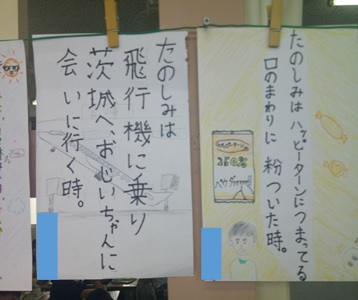 たのしみは
飛行機に乗り
茨城へ、おじいちゃんに
会いに行く時。
たのしみはハッピーターンにつまってる
口のまわりに粉ついた時。